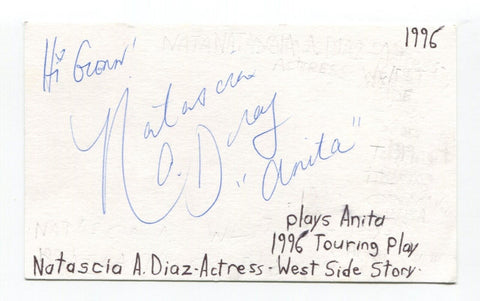 1996
Hi Genn!
Natascia
A. Diaz
"Anita"
plays Anita
1996 Touring Play
Natascia A. Diaz-Actress-West Side Story.